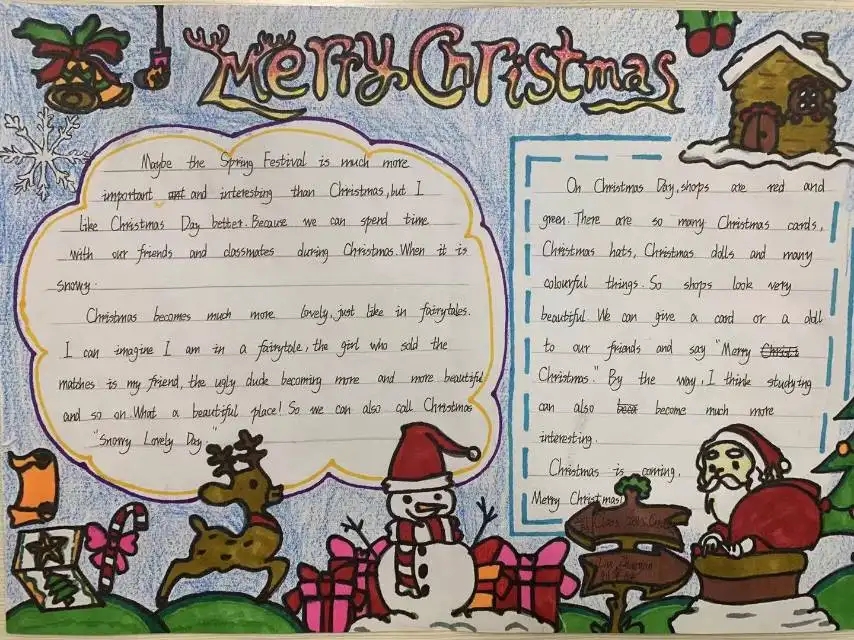 Merry Christmas
Maybe the Spring Festival is much more
important and interesting than Christmas, but I
like Christmas Day better. Because we can spend time
with our friends and classmates during Christmas. When it is
snowy.
Christmas becomes much more lovely, just like in fairytales.
I can imagine I am in a fairytale, the girl who sold the
matches is my friend, the ugly duck becoming more and more beautiful
and so on. What a beautiful place! So we can also call Christmas
"Snowy Lovely Day."
On Christmas Day, shops are red and
green. There are so many Christmas cards,
Christmas hats, Christmas dolls and many
colourful things. So shops look very
beautiful. We can give a card or a doll
to our friends and say "Merry
Christmas." By the way, I think studying
can also become much more
interesting.
Christmas is coming.
Merry Christmas!